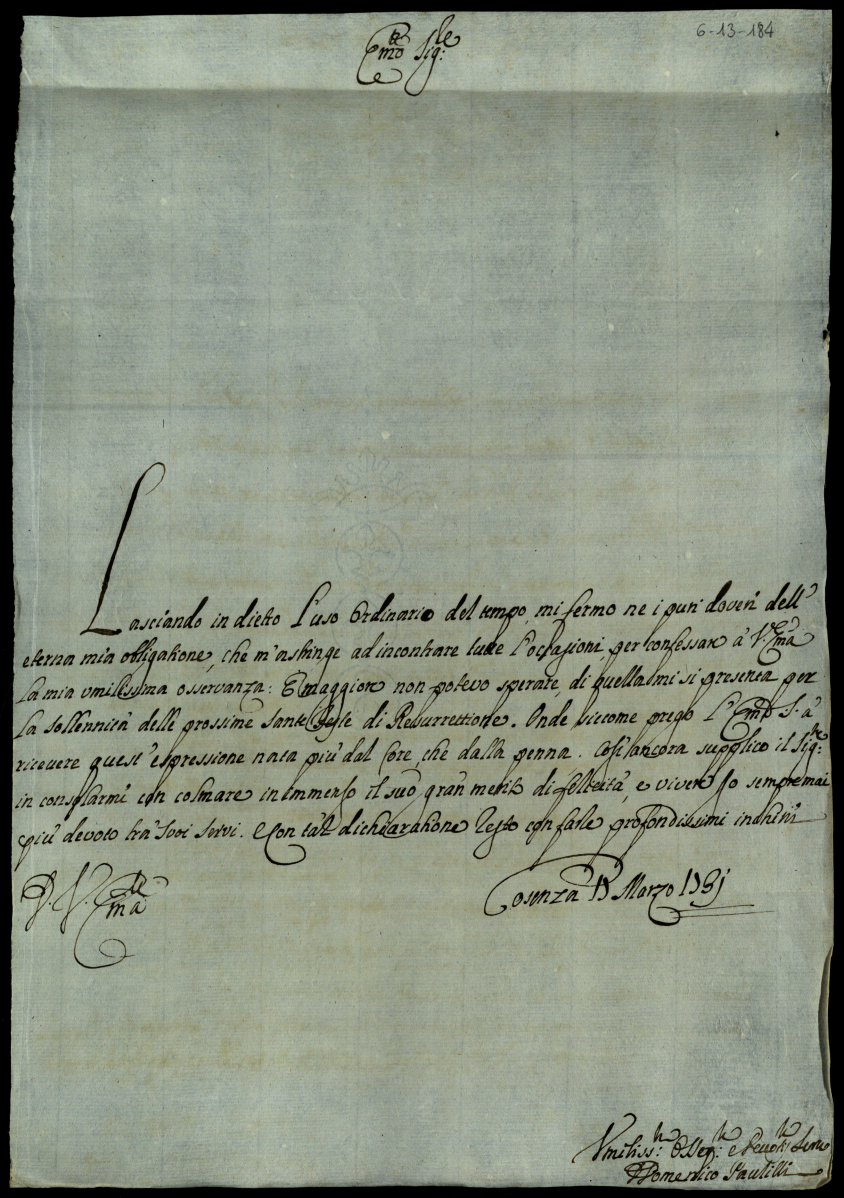 6-13-184
Em̃o Sig:re
Lasciando in dietro l'uso Ordinario del tempo, mi fermo ne i puri doveri dell'
eterna mia obligatione, che m'astringe ad incontrare tutte l'occasioni, per confessare à V.ra Em̃a
la mia umilissima osservanza: E maggiore non potevo sperare, di quella mi si presenta per
la sollennità delle prossime Sante Feste di Resurrettione. Onde siccome prego l'Em̃o S. à
ricevere quest'espressione nata più dal Core, che dalla penna. Così ancora supplico il Sig:re
in consolarmi con colmare in immenso il suo gran merito di felicità, e vivere Io sempremai
più devoto trà Suoi Servi. e con tal dichiaratione resto con farle profondissimi inchini
D. V. Em̃a
Cosenza Marzo
Umiliss:o Osseq:o e Devot:o Servo
Domenico